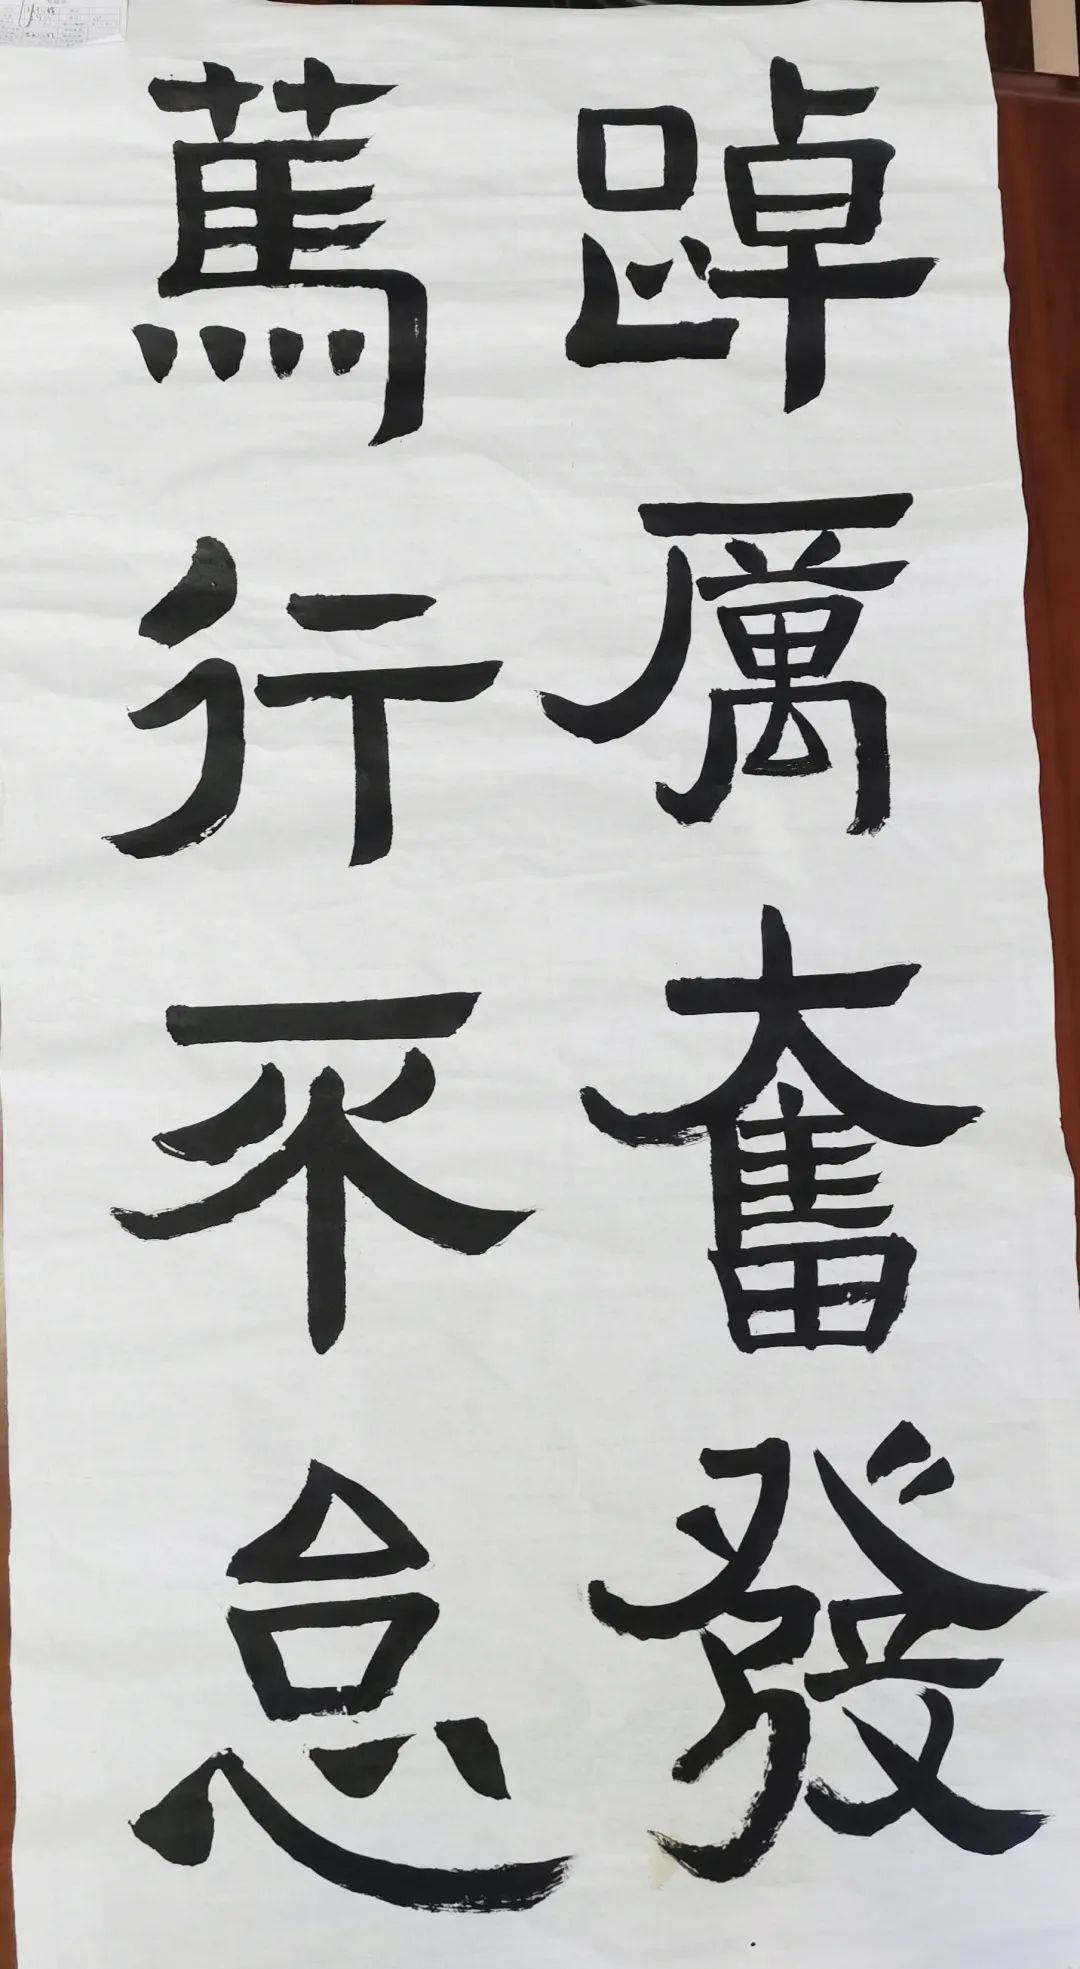 踔厲奮發
篤行不怠